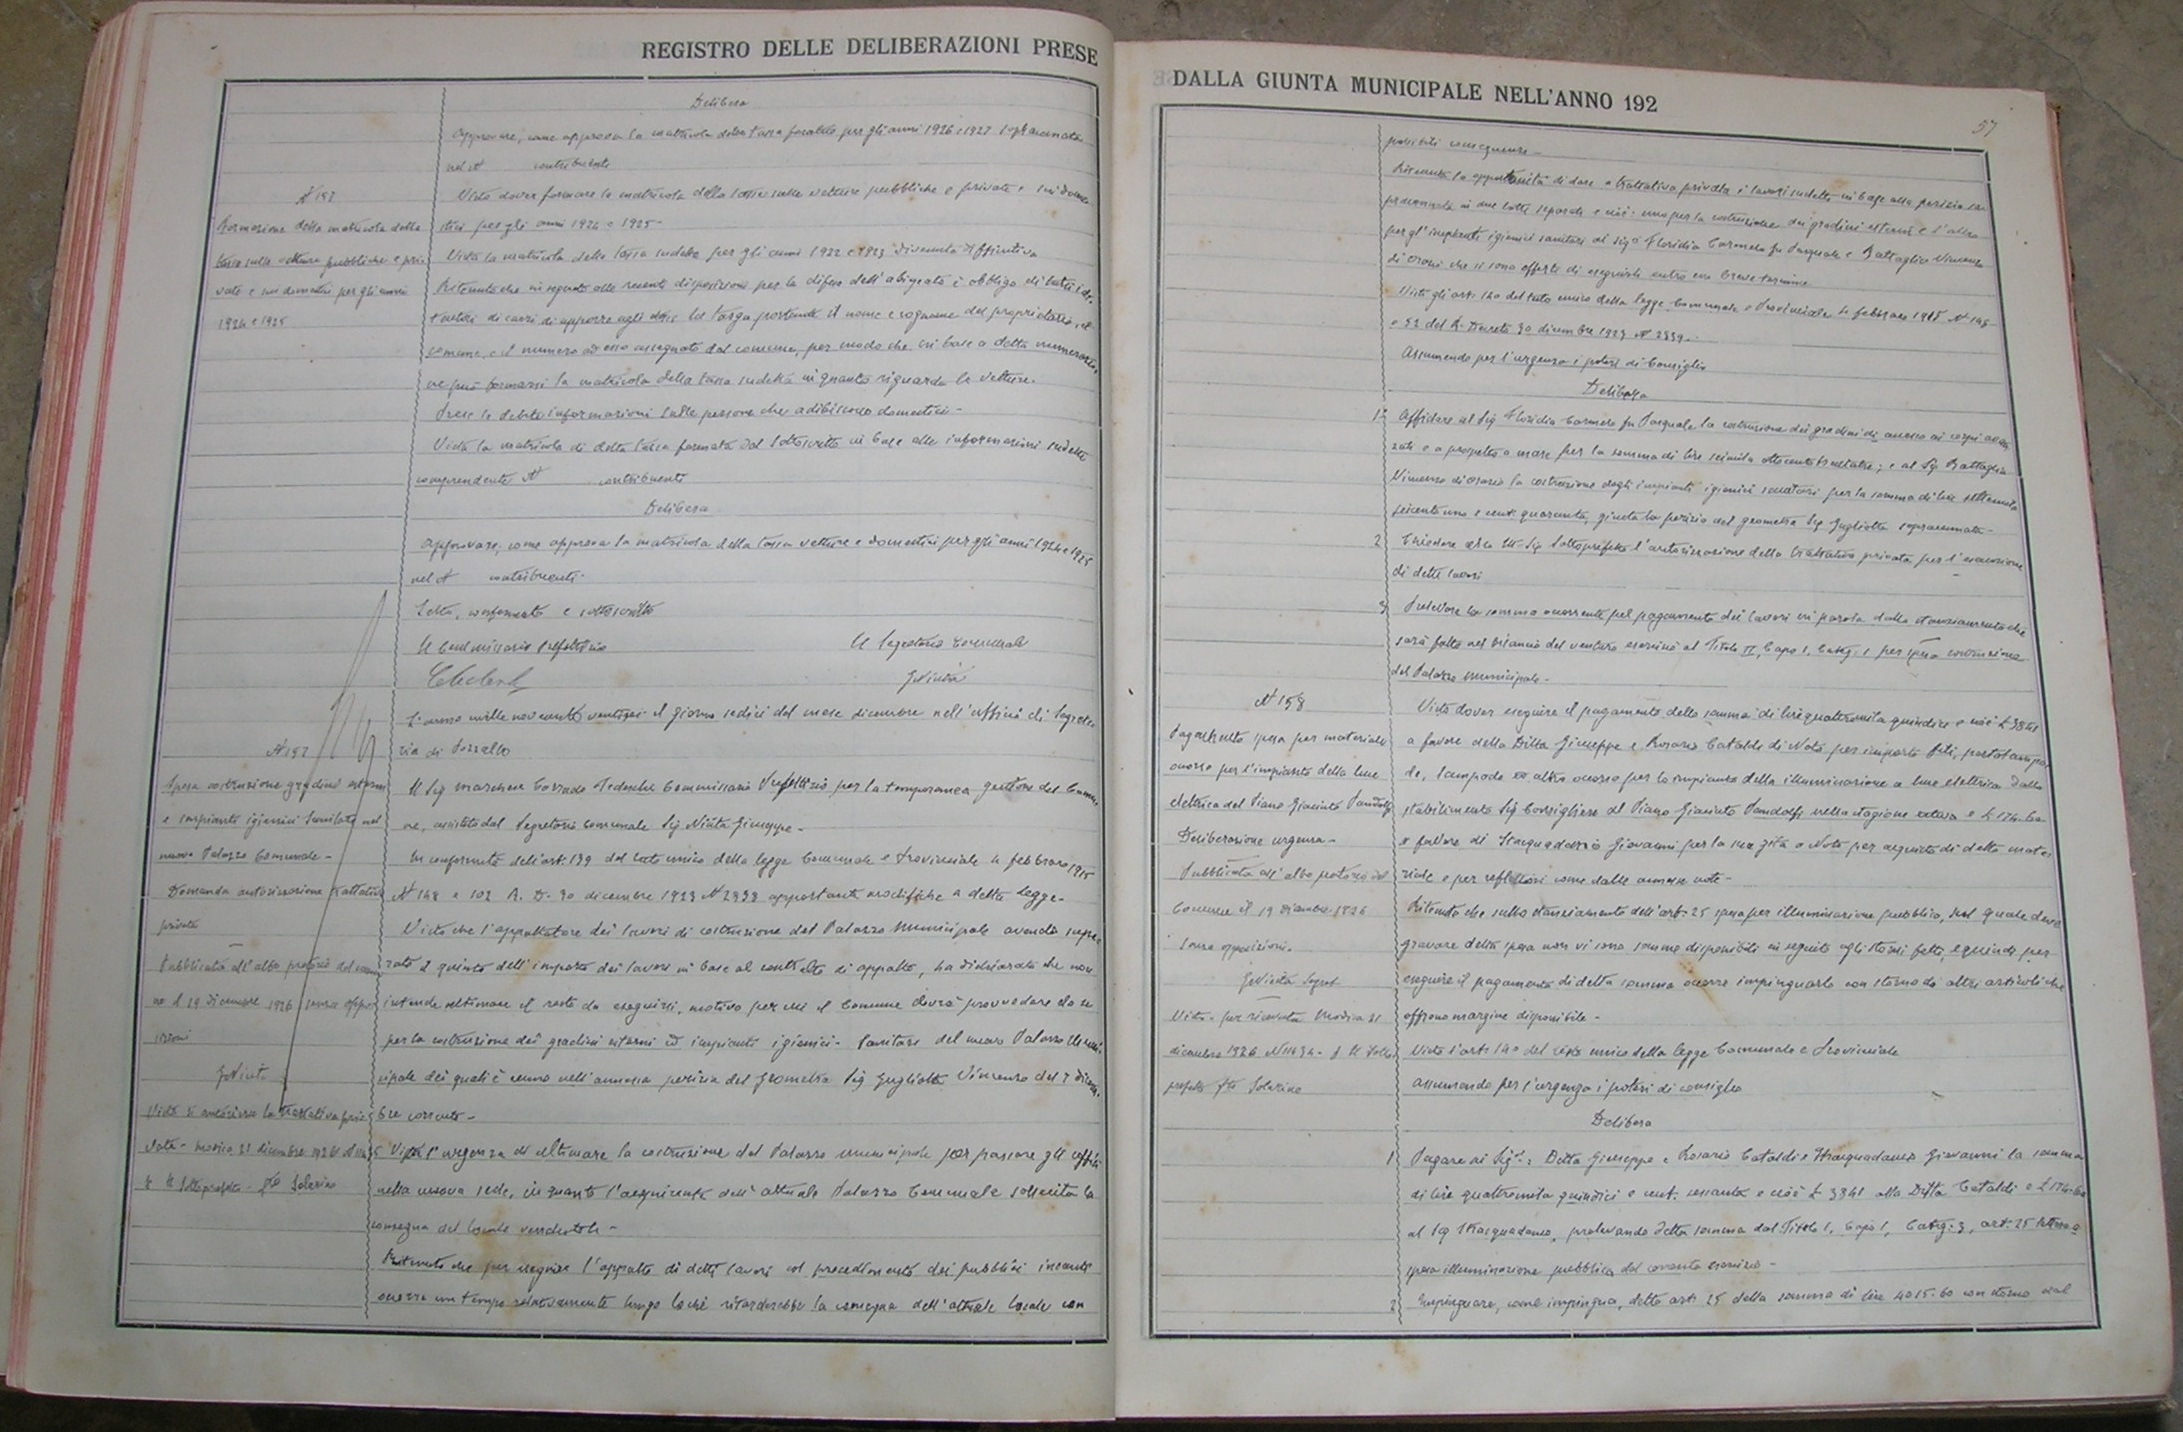 REGISTRO DELLE DELIBERAZIONI PRESE
Delibera
Approvare, come approva la matricola della tassa focatico per gli anni 1926 e 1927 sopraccennata
nel N contribuenti
Visto dover formare la matricola della tassa sulle vetture pubbliche e private e sui dome
stici per gli anni 1924 e 1925-
Vista la matricola della tassa sudetta per gli anni 1922 e 1923 divenuta definitiva
Ritenuto che in seguito alle recenti disposizioni per la difesa dell'abigeato è obbligo di tutti i de
tentori di carri di apporre agli stessi la targa portante il nome e cognome del proprietario, il
comune, e il numero ad esso assegnato dal comune, per modo che in base a detta numerazio
ne può formarsi la matricola della tassa sudetta in quanto riguarda le vetture.
Prese le debite informazioni sulle persone che adibiscono domestici-
Vista la matricola di detta tassa formata dal sottoscritto in base alle informazioni sudette
comprendente N contribuenti
Delibera
Approvare, come approva la matricola della tassa vetture e domestici per gli anni 1924 e 1925
nel N contribuenti-
Letto, confermato e sottoscritto
Il Commissario Prefettizio Il Segretario Comunale
G Nicita
Formazione della matricola della
tassa sulle vetture pubbliche e pri
vate e sui domestici per gli anni
1924 e 1925
L'anno mille novecento ventisei il giorno sedici del mese dicembre nell'ufficio di Segrete
ria di Pozzallo
Il Sig marchese Corrado Tedeschi Commissario Prefettizio per la temporanea gestione del Comu
ne, assistito dal Segretario Comunale Sig Nicita Giuseppe-
In conformità dell'art. 139 del testo unico della legge Comunale e Provinciale 4 febbraio 1915
N 148 e 102 R. D. 30 dicembre 1923 N 2839 apportante modifiche a detta legge-
Visto che l'appaltatore dei lavori di costruzione del Palazzo Municipale avendo supe
rato il quinto dell'importo dei lavori in base al contratto di appalto, ha dichiarato che non
intende ultimare il resto da eseguirsi, motivo per cui il Comune dovrà provvedere da se
per la costruzione dei gradini esterni ed impianti igienici-sanitari del nuovo Palazzo Muni
cipale dei quali è cenno nell'annessa perizia del Geometra Sig Gugliotta Vincenzo del 7 dicem
bre corrente-
Vista l'urgenza di ultimare la costruzione del Palazzo municipale per passare gli uffici
nella nuova sede, in quanto l'acquirente dell'attuale Palazzo Comunale sollecita la
consegna del locale vendutole-
Ritenuto che per eseguire l'appalto di detti lavori col procedimento dei pubblici incanti
occorre un tempo relativamente lungo lochè ritarderebbe la consegna dell'attuale locale con
N 157
Spesa costruzione gradini esterni
e impianti igienici sanitari nel
nuovo Palazzo Comunale-
Domanda autorizzazione trattativa
privata
Pubblicata all'albo pretorio del comu
ne il 19 dicembre 1926 senza oppo
sizioni
G Nicita
Visto si autorizza la trattativa pri
vata- Modica 21 dicembre 1926
Il Sottoprefetto- fto Solerino
DALLA GIUNTA MUNICIPALE NELL'ANNO 192
57
possibili conseguenze-
Ritenuta la opportunità di dare a trattativa privata i lavori sudetti in base alla perizia so
praccennata in due lotti separati e cioè: uno per la costruzione dei gradini esterni e l'altro
per gl'impianti igienici sanitari ai Sigi Floridia Carmelo fu Pasquale e Battaglia Vincenzo
di Orazio che si sono offerti di eseguirli entro un breve termine
Visto gli art: 140 del testo unico della legge Comunale e Provinciale 4 febbraio 1915 N 148
e 52 del R. Decreto 30 dicembre 1923 N 2839.-
Assumendo per l'urgenza i poteri di Consiglio
Delibera
1° Affidare al Sig Floridia Carmelo fu Pasquale la costruzione dei gradini di accesso ai corpi avan
zati e a prospetto a mare per la somma di lire seimila ottocento; e al Sig Battaglia
Vincenzo di Orazio la costruzione degli impianti igienici sanitari per la somma di lire settemila
seicento uno e cent. quaranta, giusta la perizia del geometra Sig Gugliotta sopraccennata-
2 Chiedere all'Ill. Sig Sottoprefetto l'autorizzazione della trattativa privata per l'esecuzione
di detti lavori
3 Prelevare la somma occorrente pel pagamento dei lavori in parola dallo stanziamento che
sarà fatto nel bilancio del venturo esercizio al Titolo II, Capo 1, Categ: 1 per spesa costruzione
del Palazzo municipale-
N 158
Pagamento spesa per materiale
occorso per l'impianto della luce
elettrica del Piano Giacinto Pandolfi
Deliberazione urgenza-
Pubblicata all'albo pretorio del
Comune il 19 dicembre 1926
senza opposizioni.
G Nicita Segret
Visto- per ricevuta Modica 21
dicembre 1926 N 11434- Il Sotto
prefetto fto Solerino
Visto dover eseguire il pagamento della somma di lire quattromila quindici e cioè £ 3841
a favore della Ditta Giuseppe e Rosario Cataldi di Noto per importo fili, portalampa
de, lampade ed altro occorso per lo impianto della illuminazione a luce elettrica dallo
stabilimento Sig Consigliere al Piano Giacinto Pandolfi nella stagione estiva e £ 174.60
a favore di Stracquadanio Giovanni per la sua gita a Noto per acquisto di detto mate
riale e per riflettori come dalle annesse note-
Ritenuto che sullo stanziamento dell'art: 25 spesa per illuminazione pubblica, sul quale deve
gravare detta spesa non vi sono somme disponibili in seguito agli storni fatti, e quindi per
eseguire il pagamento di detta somma occorre impinguarlo con storno da altri articoli che
offrono margine disponibile-
Visto l'art: 140 del testo unico della legge Comunale e Provinciale
assumendo per l'urgenza i poteri di consiglio
Delibera
1 Pagare ai Sigi: Ditta Giuseppe e Rosario Cataldi e Stracquadanio Giovanni la somma
di lire quattromila quindici e cent. sessanta e cioè £ 3841 alla Ditta Cataldi e £ 174.60
al Sig Stracquadanio, prelevando detta somma dal Titolo 1, Capo 1, Categ: 3, art: 25 lettera a
spesa illuminazione pubblica del corrente esercizio-
2 Impinguare, come impingua, detto art: 25 della somma di lire 4015.60 con storno dal